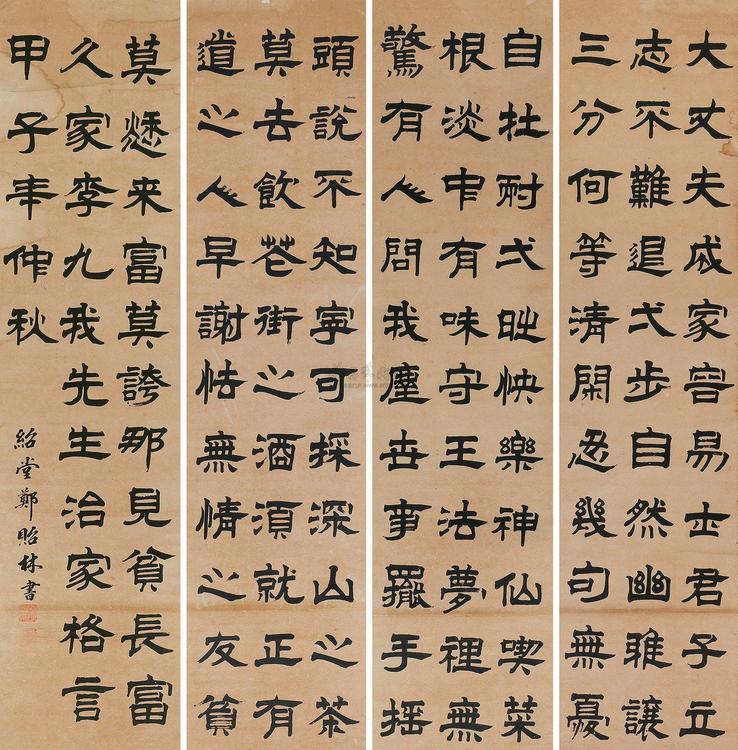 大丈夫成家容易士君子立
志不難退弌步自然幽雅讓
三分何等清閑忍幾句無憂
自在耐弌時快樂神仙喫菜
根淡中有味守王法夢裡無
驚有人問我塵世事擺手搖
頭說不知寧可採深山之茶
莫去飲花街之酒須就正有
道之人早謝却無情之友貧
莫愁来富莫誇那見貧長富
久家李九我先生治家格言
甲子年仲秋
紹堂鄭貽林書